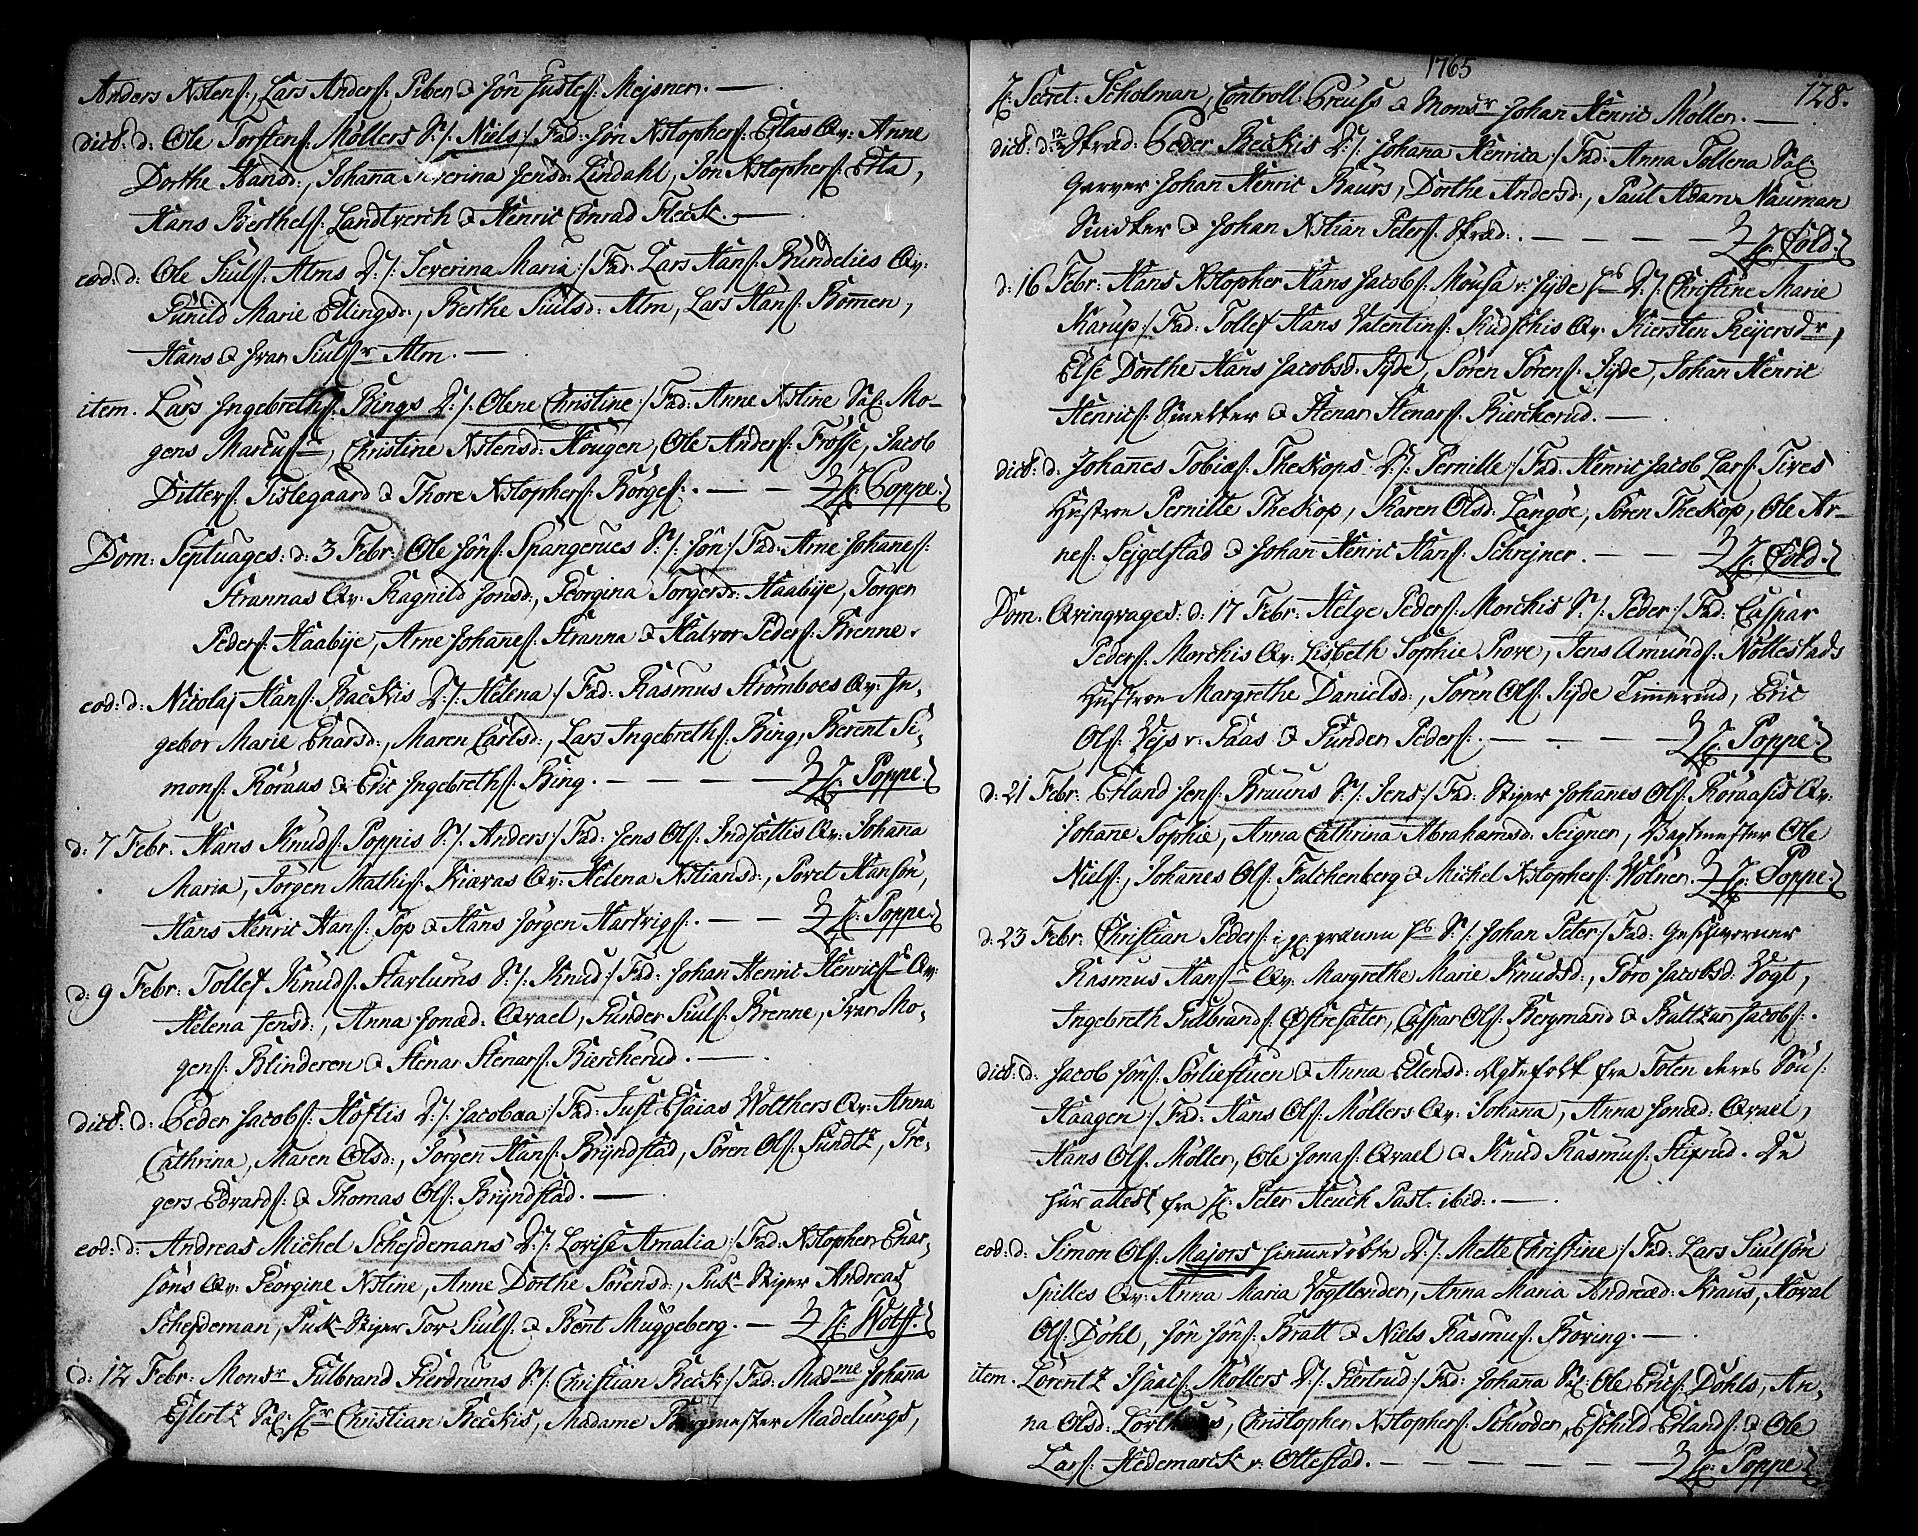 Anders Nstens:, Lars Anders: Piber & Jôn Justes: Mejsner. —
dict: d: Ole Torstens: Möllers S:/: Niels :/ Fad: Jôn Nstophers: Etlas Qv: Anne
Dorthe Hansd:, Johaña Severina Jensd: Lindahl, Jôn Nstophers: Etla,
Hans Berthels: Landtverch & Henric Conrad Fleck. —
eod: d: Ole Siuls: Alms D:/: Severina Maria :/ Fad: Lars Hans: Bundelies Qv:
Gunild Marie Ellingsd:, Berthe Siulsd: Alm, Lars Hans: Bomen,
Hans & Ivar Siulsr Alm. —
item. Lars Ingebreths: Rings D:/: Olene Christine :/ Fad: Anne Nstine Sal: Mo-
gens Marcus:, Christine Nstensd: Hougen, Ole Anders: Frosse, Jacob
Ditters: Tislegaard & Thore Nstophers: Börges: — — H: Poppe.
Dom: Septuages: d: 3 Febr: Ole Jôns: Spangenies S:/: Jôn :/ Fad: Arne Johanes:
Strannas Qv: Ragnild Jonsd:, Georgina Torgersd: Haabije, Torger
Peders: Haabije, Arne Johanes: Stranna & Halvor Peders: Brenne.
eod: d: Nicolaj Hans: Backis D:/: Helena :/ Fad: Rasmus Strömboes Qv: In-
gebor Marie Enarsd:, Maren Carlsd:, Lars Ingebreths: Ring, Berent Si-
mons: Röraas & Eric Ingebreths: Ring. — — — H: Poppe.
d: 7 Febr: Hans Knuds: Poppis S:/: Anders :/ Fad: Jens Ols: Indsættis Qv: Johaña
Maria, Jörgen Mathis: Kiæras Qv: Helena Nstiansd:, Povel Hansön,
Hans Henric Hans: Pop & Hans Jörgen Hartvigs: — — H: Poppe.
d: 9 Febr: Tollef Knuds: Starlums S:/: Knud :/ Fad: Johan Henric Henrics: Qv:
Helena Jensd:, Anna Jonæd: Qvael, Gunder Siuls: Brenne, Ivar Mo-
gens: Blinderen & Stenar Stenars: Bierckerud. —
dict: d: Peder Jacobs: Hoftis D:/: Jacobaa :/ Fad: Just Esaias Wolthers Qv: Anna
Cathrina, Maren Olsd:, Jörgen Hans: Bryndstad, Sören Ols: Sundtz, Tre-
gers Edvards: & Thomas Ols: Bryndstad. —
eod: d: Andreas Michel Schejdemans D:/: Lovise Amalia :/ Fad: Nstopher Enar-
söns Qv: Georgine Nstine, Anne Dorthe Sörensd:, Puk-Stiger Andreas
Schejdeman, Puk-Stiger Tor Siuls: & Bent Muggeberg. — H: Wolff.
d: 12 Febr: Monsr Gulbrand Gierdrums S:/: Christian Beck :/ Fad: Madme Johaña
Ejlertz Sal: Hr Christian Beckis, Madame Borgmester Madelungs,
1765
128.
H: Secret: Scholman, Controll: Preuss & Monsr Johan Henric Möller. —
dict: d: 12/2 Skræd: Peder Beckis D:/: Johana Henrica :/ Fad: Anna Tollena Sal:
Garver Johan Henric Baurs, Dorthe Andersd:, Paul Adam Nauman
Snedker & Johan Nstian Peters: Skræd: — — — — H: Cold.
d: 16 Febr: Hans Nstopher Hans Jacobs: Mousa v: Syde D:/: Christine Marie
Karup :/ Fad: Tollef Hans Valentins: Kudschis Qv: Kiersten Reijersdr,
Else Dorthe Hans Jacobsd: Syde, Sören Sörens: Syde, Johan Henric
Henrics: Smelter & Stenar Stenars: Bierckerud. —
dict: d: Johañes Tobiæs: Theskops D:/: Pernille :/ Fad: Henric Jacob Lars: Tires
Hustroe Pernille Theskop, Karen Olsd: Langöe, Sören Theskop, Ole Ar-
nes: Sejgelstad & Johan Henric Hans: Schrejner. — — H: Cold.
Dom. Qvinqvages: d: 17 Febr: Helge Peders: Morckis S:/: Peder :/ Fad: Caspar
Peders: Morckis Qv: Lisbeth Sophie Prove, Jens Amunds: Nöllestads
Hustroe Margrethe Danielsd:, Sören Ols: Syde Timerud, Eric
Ols: Vejs v: Saas & Gunder Peders: — — — H: Poppe.
d: 21 Febr: Erland Jens: Bruuns S:/: Jens :/ Fad: Stiger Johanes Ols: Röraasis Qv:
Johane Sophie, Anna Cathrina Abrahamsd: Seigner, Vagtmester Ole
Niels:, Johanes Ols: Falchenberg & Michel Nstophers: Wölner. H: Poppe.
d: 23 Febr: Christian Peders: S:/: Johan Peter :/ Fad: Geschworner
Rasmus Hans: Qv: Margrethe Marie Knudsd:, Goro Jacobsd: Vogt,
Ingebreth Gulbrands: Östresäter, Caspar Ols: Bergmand & Baltzar Jacobs:.
dict: d. Jacob Jôns: Sörliefluen & Anna Ellensd: Ægtefolk fra Toten deres Sön /:
Haagen :/ Fad: Hans Ols: Möllers Qv: Johana, Anna Jonæd: Qvael,
Hans Ols: Möller, Ole Jonas: Qvael & Knud Rasmus: Stifrud. De
har attest fra H: Peter Heuch Past: ibid: —
eod: d: Simon Ols: Majors D:/: Mette Christine :/ Fad: Lars Siulsön
Spilles Qv: Anna Maria Vogtlender, Anna Maria Andreæd: Kraus, Haral
Ols: Döhl, Jôn Jôns: Bratt & Niels Rasmus: Boring. —
item. Lorentz Isaacs: Möllers D:/: Giertrud :/ Fad: Johana Sal: Ole Erics: Döhls, An-
na Olsd:, Christopher Nstophers: Schröder, Eschild Erlands: & Ole
Lars: Hedemarck v: Ottestad. — — — — — H: Poppe.